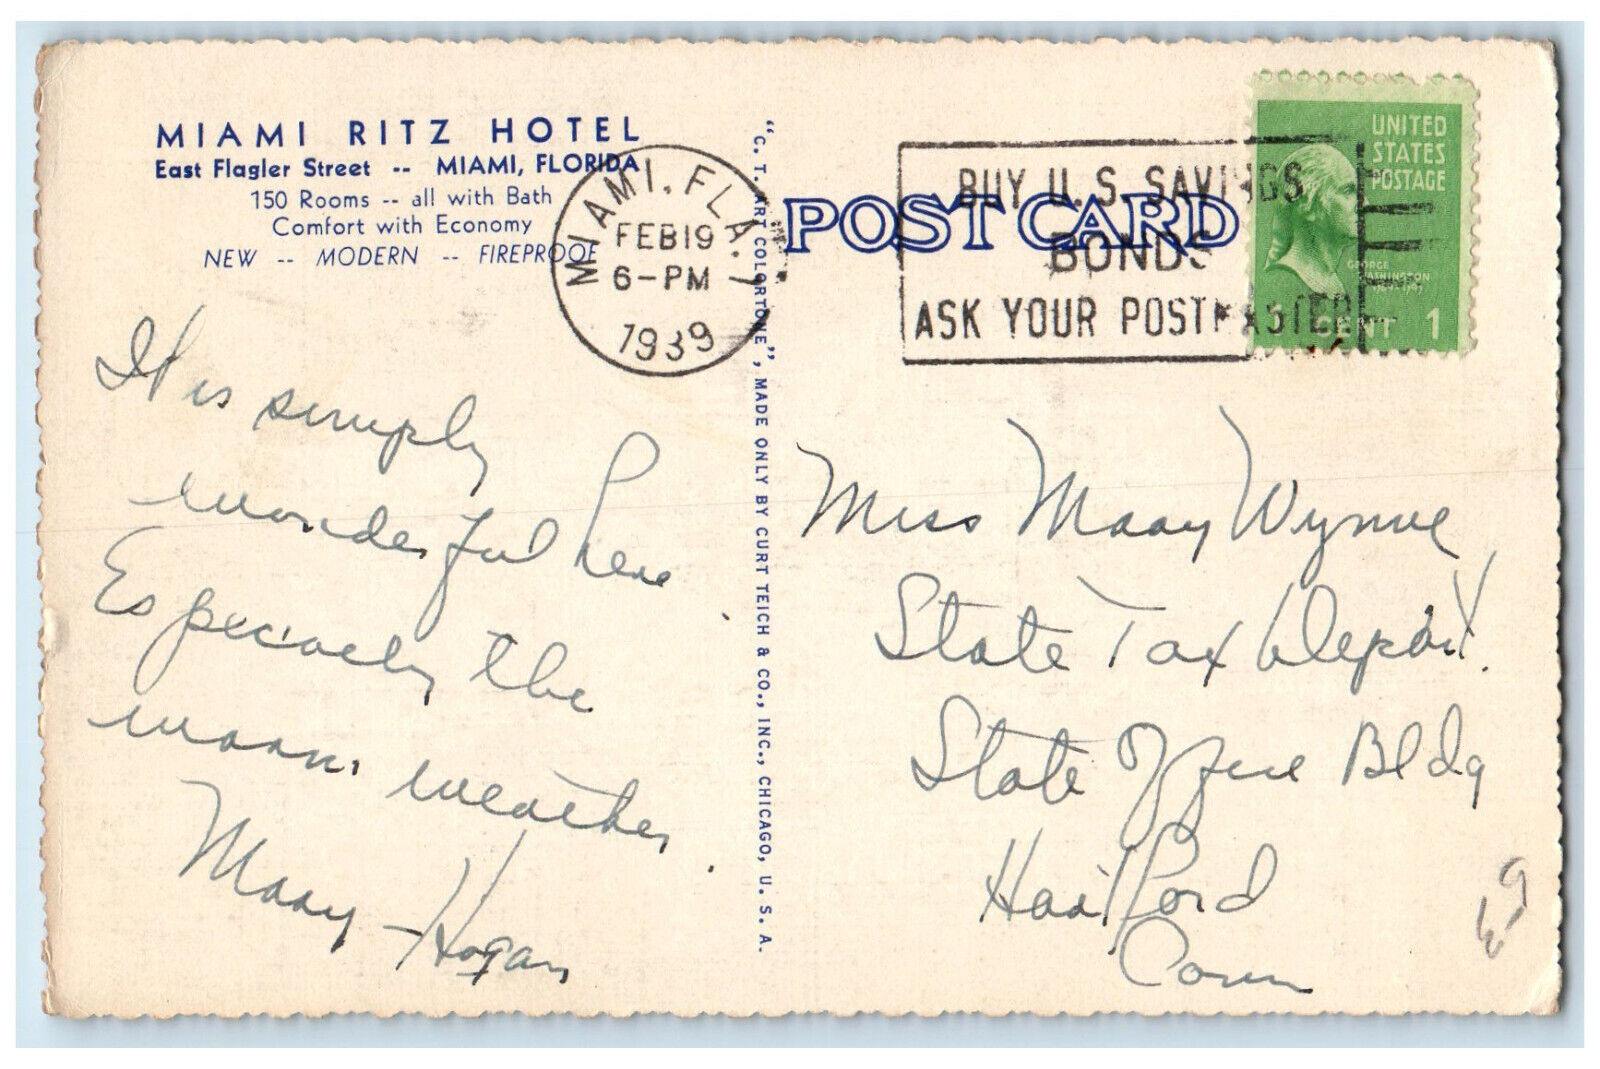 MIAMI RITZ HOTEL
East Flagler Street -- MIAMI, FLORIDA
150 Rooms -- all with Bath
Comfort with Economy
NEW -- MODERN -- FIREPROOF
MIAMI, FLA. 1
FEB 19
6-PM
1939
"C. T. ART COLORTONE", MADE ONLY BY CURT TEICH & CO., INC., CHICAGO, U. S. A.
POST CARD
BUY U.S. SAVINGS
BONDS
ASK YOUR POSTMASTER
UNITED
STATES
POSTAGE
GEORGE
WASHINGTON
CENT 1
It is simply
wonderful here
Especially the
warm weather
Mary Hogan
Miss Mary Wynne
State Tax Depart.
State Office Bldg
Hartford
Conn